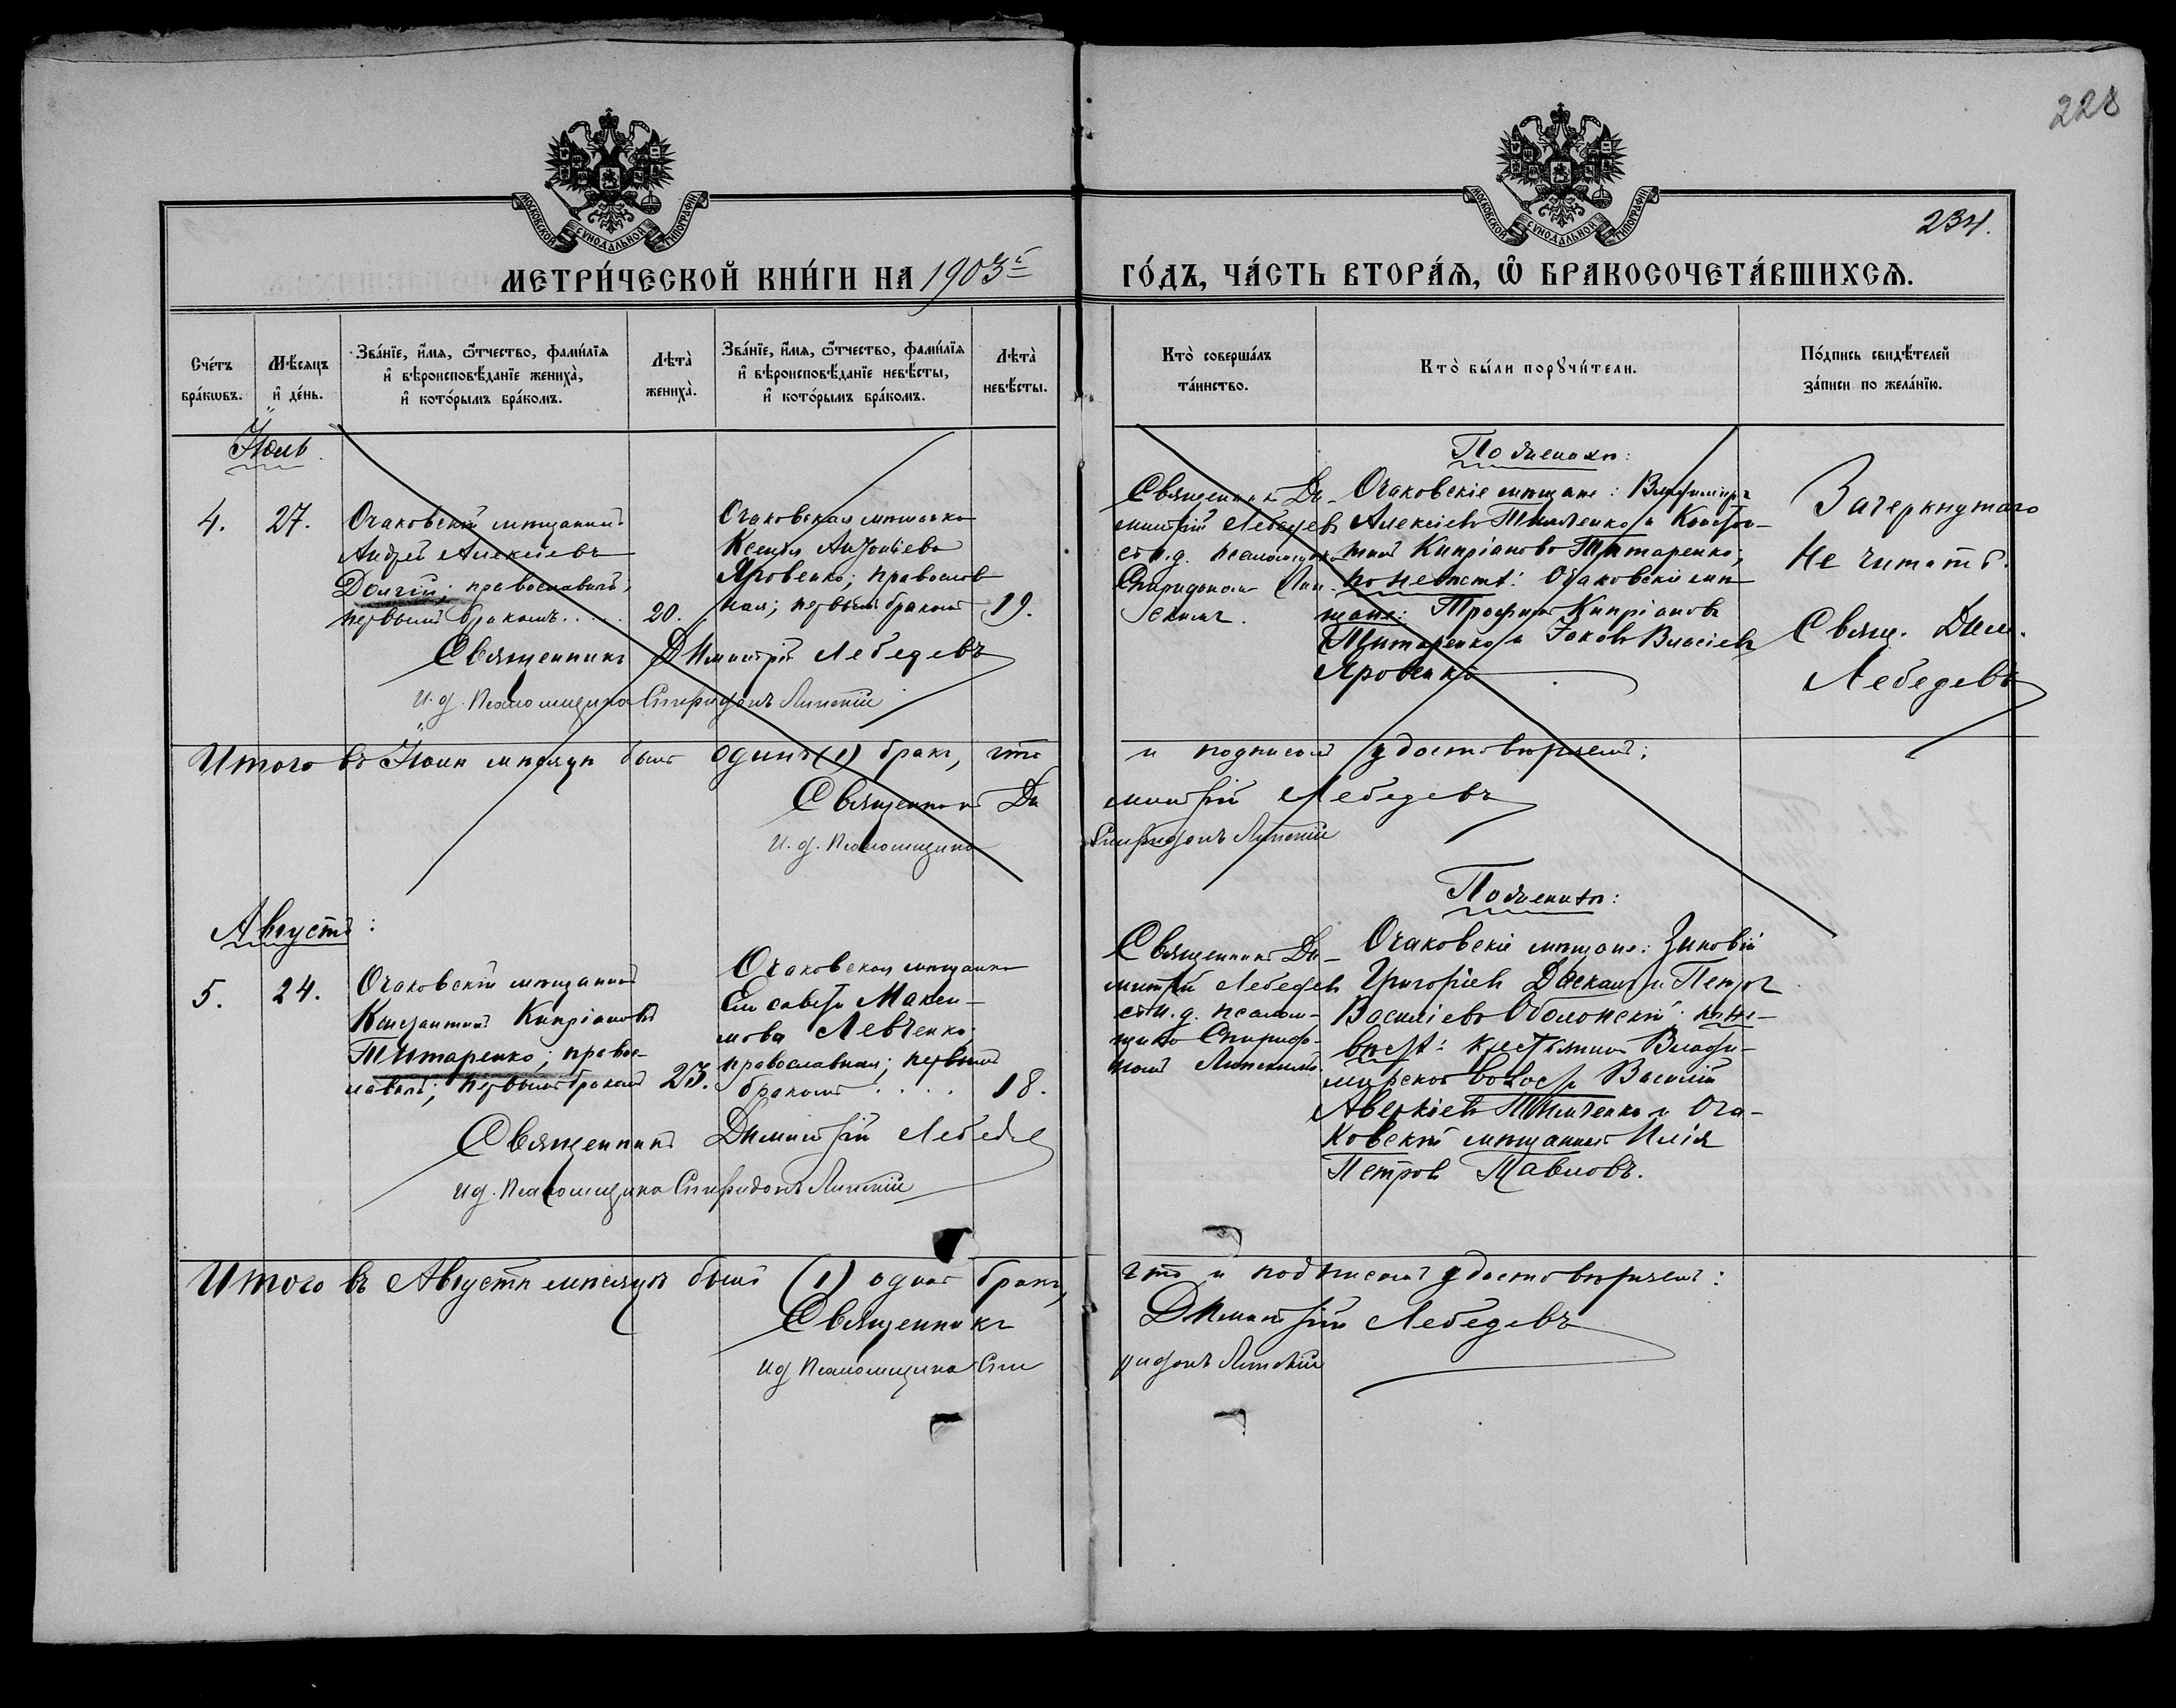 228
МОСКОВСКОЙ СѴНОДАЛЬНОЙ ТИПОГРАФІИ
МОСКОВСКОЙ СѴНОДАЛЬНОЙ ТИПОГРАФІИ
234.
МЕТРИ́ЧЕСКОЙ КНИ́ГИ НА 1903й
ГО́ДЪ, ЧА́СТЬ ВТОРА́Я, Ѿ БРАКОСОЧЕТА́ВШИХСѦ.
Сче́тъ
бра́кѡвъ.
Мѣ́сяцъ
и҆ де́нь.
Зва́нїе, и҆́мѧ, ѻ҆́тчество, фами́лїѧ
и҆ вѣроисповѣ́данїе жениха̀,
и҆ кото́рымъ бра́комъ.
Лѣта̀
жениха̀.
Зва́нїе, и҆́мѧ, ѻ҆́тчество, фами́лїѧ
и҆ вѣроисповѣ́данїе невѣ́сты,
и҆ кото́рымъ бра́комъ.
Лѣта̀
невѣ́сты.
Кто̀ соверша́лъ
та́инство.
Кто̀ бы́ли порꙋчи́тели.
По́дпись свидѣ́телей
за́писи по жела́нїю.
Іюль.
4.
27.
Очаковскій мѣщанинъ
Андрей Алексіевъ
Долгій; православный;
первымъ бракомъ . . . .
20.
Очаковская мѣщанка
Ксенія Антоніева
Яровенко; православ
ная; первымъ бракомъ
19.
Священникъ Ди-
митрій Лебедевъ
съ и.д. псаломщика
Спиридономъ Лип-
скимъ.
По женихѣ:
Очаковскіе мѣщане: Владиміръ
Алексіевъ Тимченко и Констан-
тинъ Кипріановъ Титаренко;
по невѣстѣ: Очаковскіе мѣ-
щане: Трофимъ Кипріановъ
Титаренко и Іаковъ Власіевъ
Яровенко
Зачеркнутаго
не читать.
Свящ. Дим.
Лебедевъ
Священникъ Димитрій Лебедевъ
И.д. Псаломщика Спиридонъ Липскій
Итого въ Іюлѣ мѣсяцѣ былъ одинъ (1) бракъ, что и подписомъ удостовѣряемъ:
Священникъ Димитрій Лебедевъ
И.д. Псаломщика Спиридонъ Липскій
Августъ:
5.
24.
Очаковскій мѣщанинъ
Константинъ Кипріановъ
Титаренко; правос-
лавный; первымъ бракомъ
23.
Очаковская мѣщанка
Елисавета Макси-
мова Левченко;
православная; первымъ
бракомъ . . . .
18.
Священникъ Ди-
митрій Лебедевъ
съ и.д. псалом-
щика Спиридо-
номъ Липскимъ.
По женихѣ:
Очаковскіе мѣщане: Зиновій
Григоріевъ Даскалъ и Петръ
Василіевъ Оболонскій; по не-
вѣстѣ: крестьянинъ Влади-
мірской волости Василій
Аверкіевъ Тимченко и Оча-
ковскій мѣщанинъ Илія
Петровъ Павловъ.
Священникъ Димитрій Лебедев
И.д. Псаломщика Спиридонъ Липскій
Итого въ Августѣ мѣсяцѣ былъ (1) одинъ бракъ, что и подписомъ удостовѣряемъ:
Священникъ Димитрій Лебедевъ
И.д. Псаломщика Спиридонъ Липскій